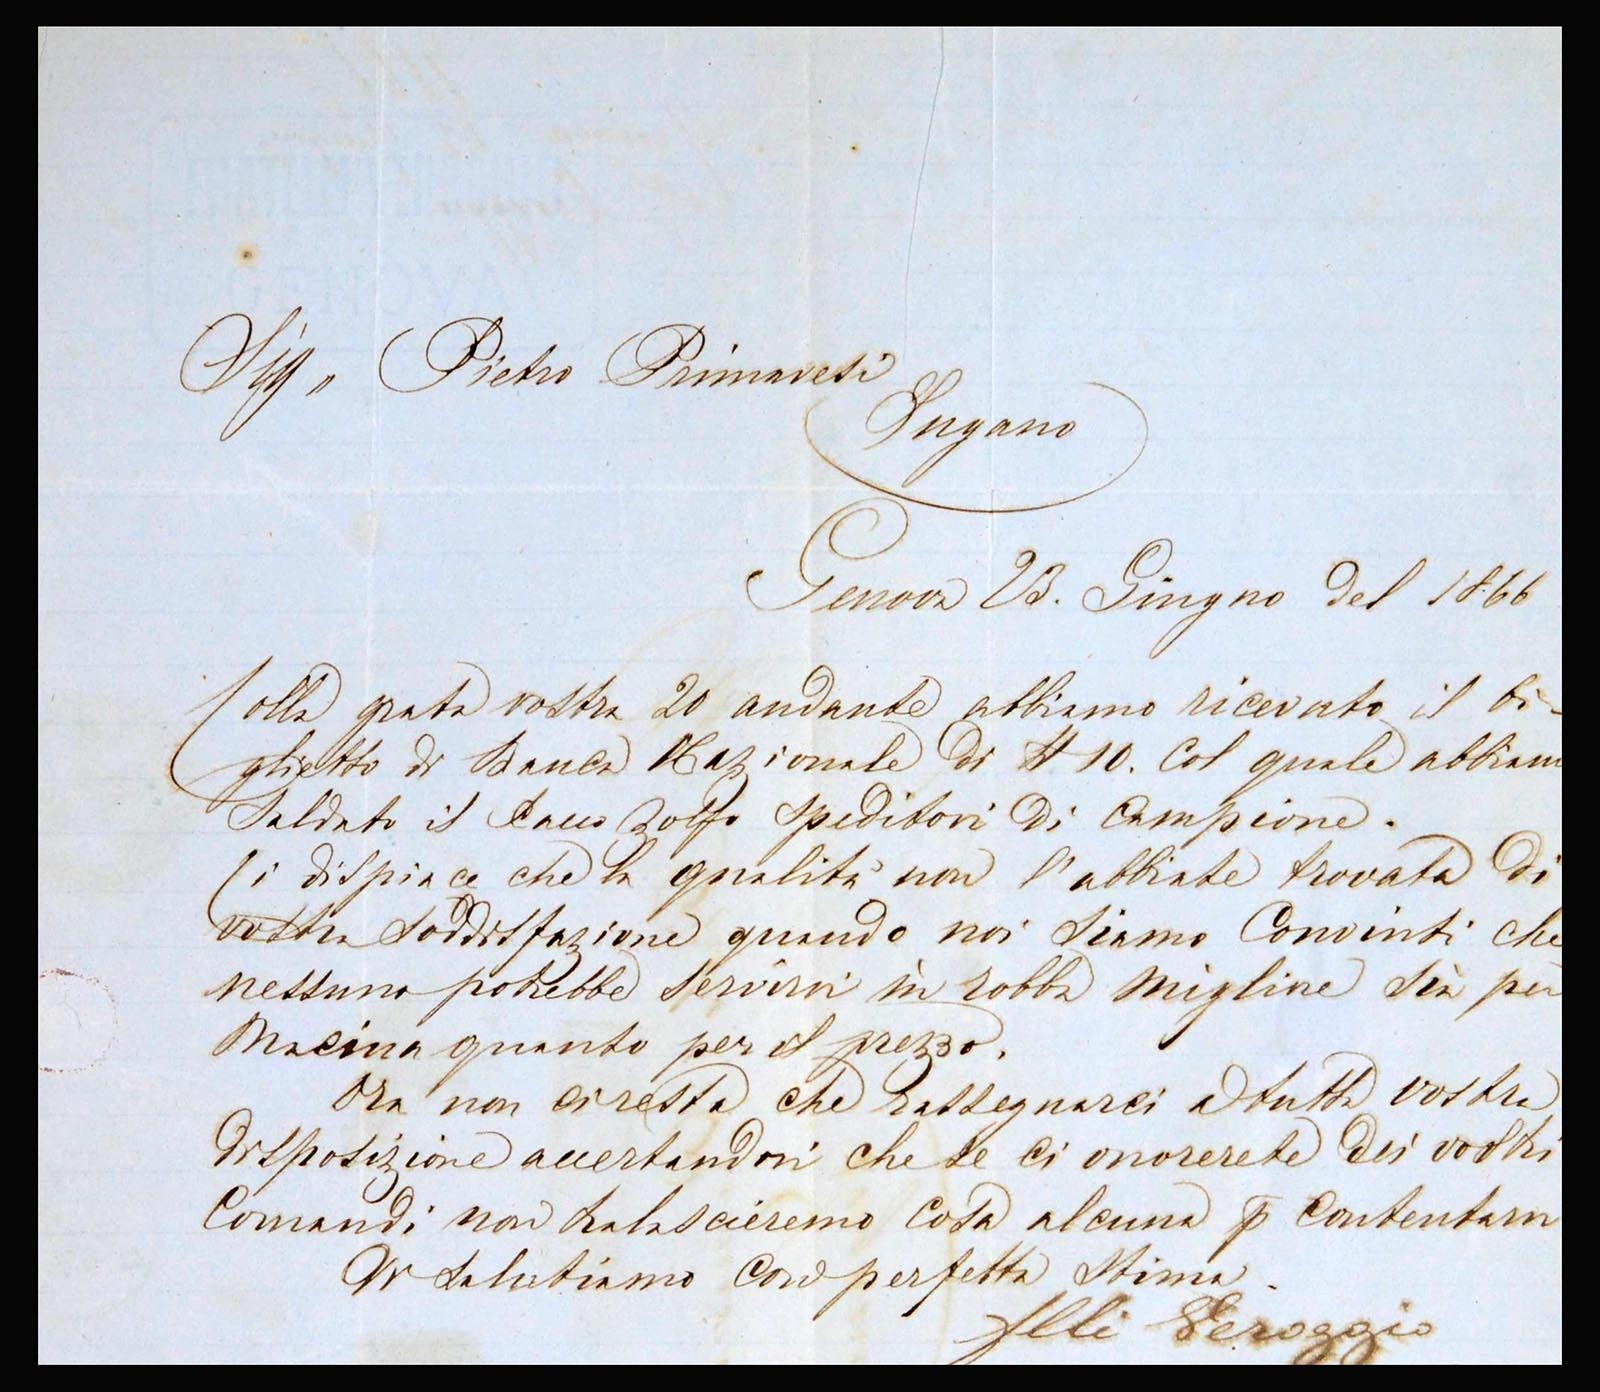 Sig.,, Pietro Primavesi
Lugano
Genova 23. Giugno del 1866
Colla grata vostra 20 andante abbiamo ricevuto il bi-
glietto di Banca Nazionale di # 10. col quale abbiam
saldato il Sacco Zolfo speditovi di Campione.
Ci dispiace che la qualità non l'abbiate trovata di
vostra soddisfazione quando noi siamo Convinti che
nessuno potrebbe servirvi in robba migliore sia per
Macina quanto per il prezzo.
Ora non ci resta che rassegnarci a tutta vostra
disposizione accertandovi che se ci onorerete dei vostri
Comandi non tralascieremo cosa alcuna p contentarvi
Vi salutiamo con perfetta stima.
Flli Peroggio